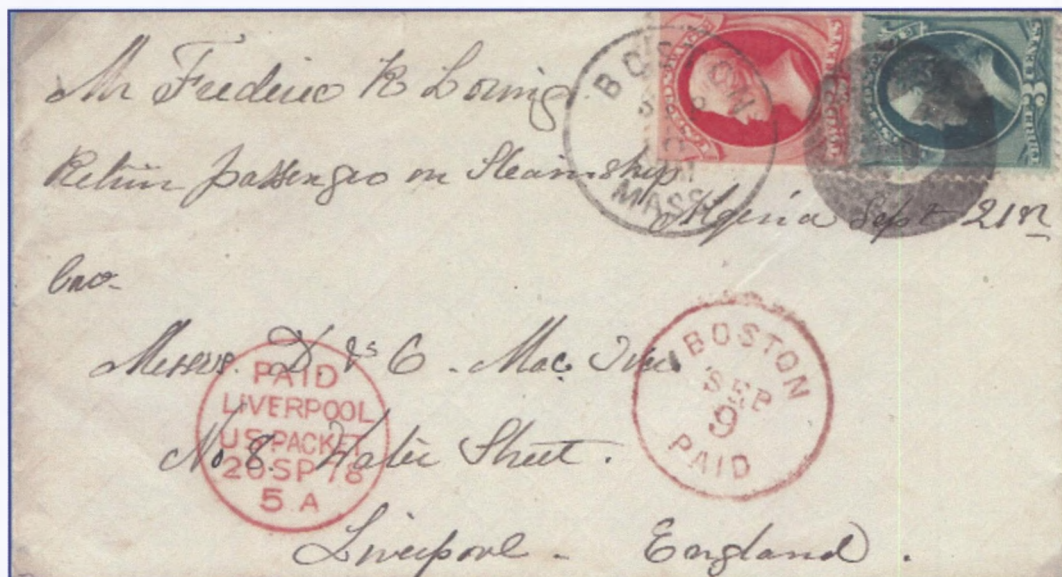 Mr Frederic R Loring
Return passenger on Steamship
Algeria Sept 21st
Care
Messrs. D. & C. Mac Iver
No 8. Water Street.
Liverpool - England.
BOSTON
MASS
BOSTON
SEP
9
PAID
PAID
LIVERPOOL
US PACKET
20 SP 78
5 A